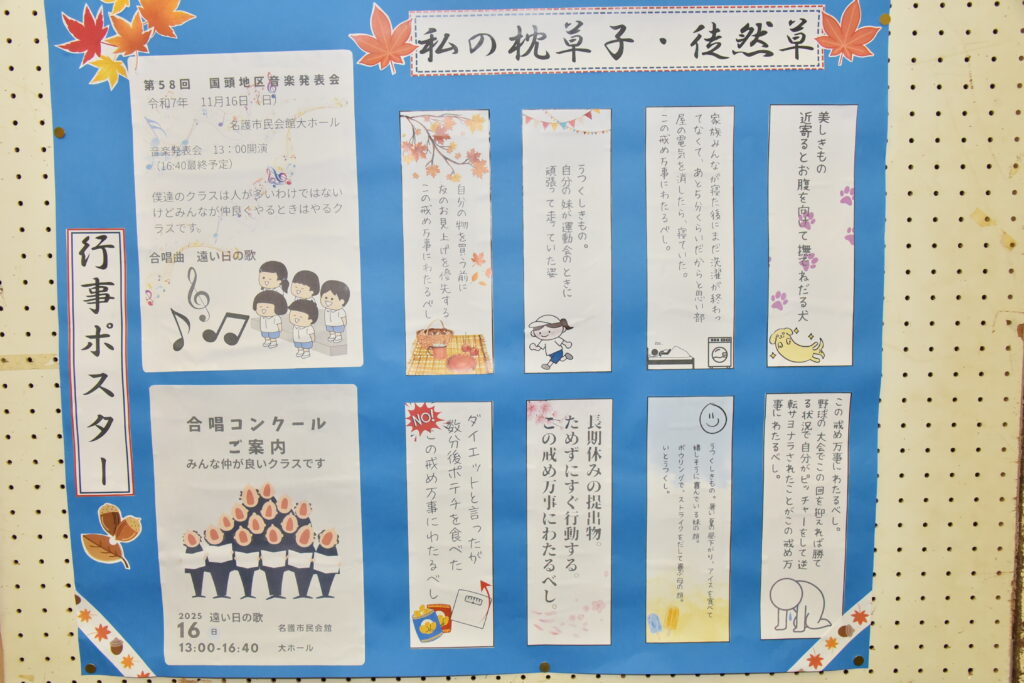 私の枕草子・徒然草
行事ポスター
第58回 国頭地区音楽発表会
令和7年 11月16日(日)
名護市民会館大ホール
音楽発表会 13:00開演
(16:40最終予定)
僕達のクラスは人が多いわけではない
けどみんなが仲良くやるときはやるク
ラスです。
合唱曲 遠い日の歌
合唱コンクール
ご案内
みんな仲が良いクラスです
2025 遠い日の歌
16 日 名護市民会館
13:00-16:40 大ホール
美しきもの
近寄るとお腹を向けて撫でねだる犬
家族みんなが寝た後にまだ洗濯が終わっ
てなくて、あと5分くらいだからと思い部
屋の電気を消したら、寝ていた。
この戒め万事にわたるべし。
うつくしきもの。
自分の妹が運動会のときに
頑張って走っていた姿
自分の物を買う前に
友のお見上げを優先する
この戒め万事にわたるべし
この戒め万事にわたるべし。
野球の大会でこの回を抑えれば勝て
る状況で自分がピッチャーをして逆
転サヨナラされたことがこの戒め万
事にわたるべし。
うつくしきもの。暑い夏の昼下がり、アイスを食べて
嬉しそうに喜んでいる妹の顔。
ボウリングで、ストライクをだして喜ぶ母の顔。
いとうつくし。
長期休みの提出物。
ためずにすぐ行動する。
この戒め万事にわたるべし。
NO!
ダイエットと言ったが
数分後ポテチを食べた
この戒め万事にわたるべし